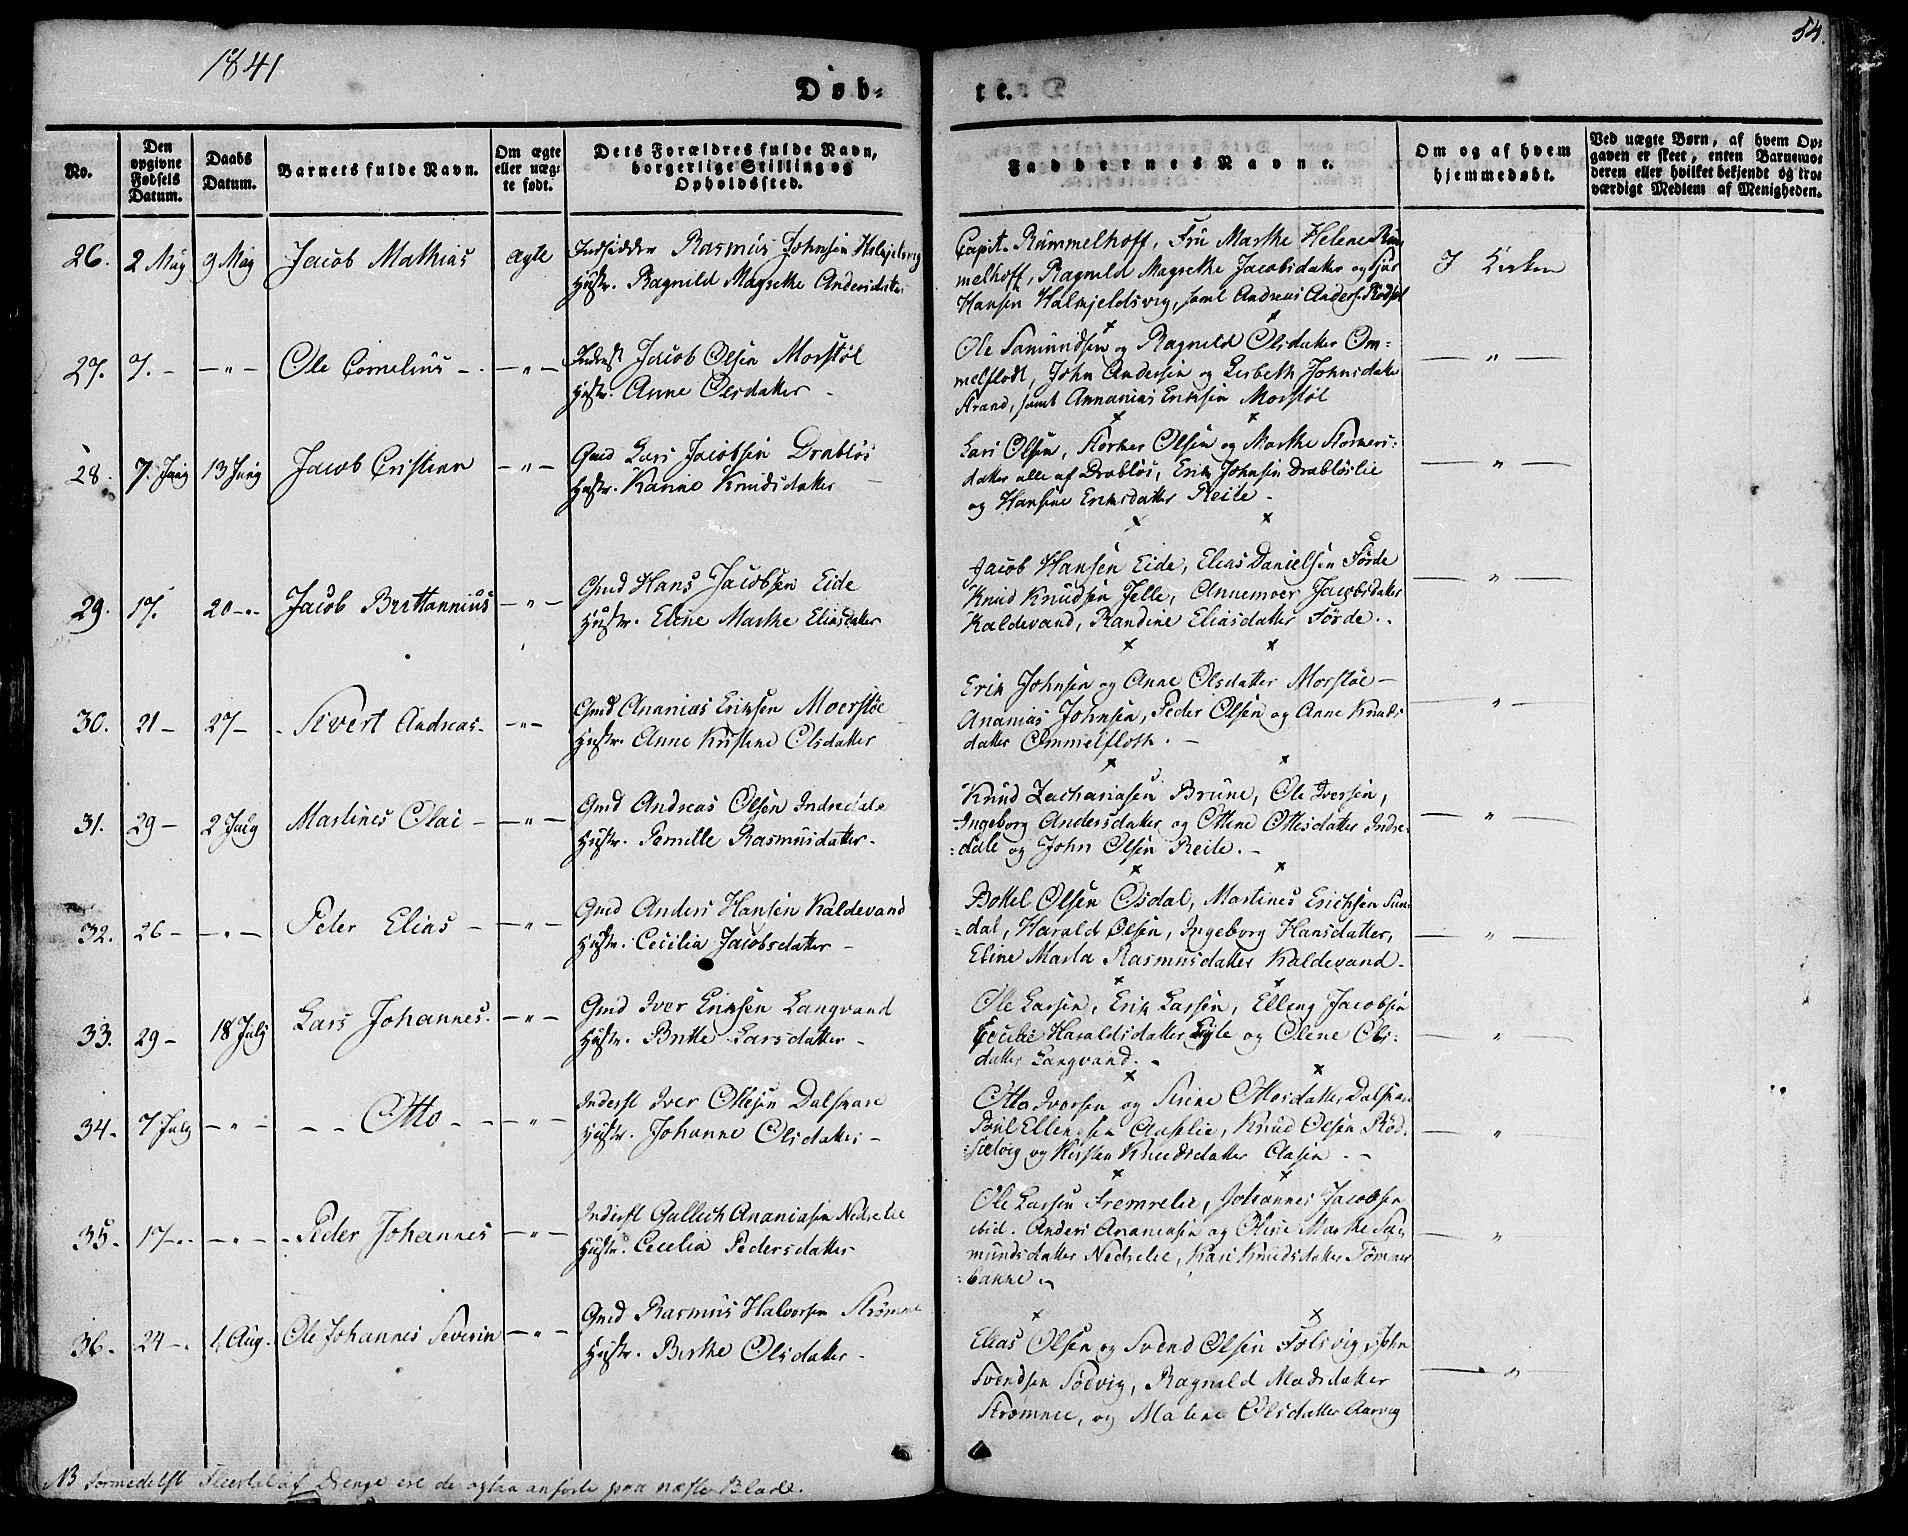 1841
54.
Døb-
te.
No.
Den opgivne Fødsels Datum.
Daabs Datum.
Barnets fulde Navn.
Om ægte eller uægte født.
Dets Forældres fulde Navn, borgerlige Stilling og Opholdssted.
Faddernes Navne.
Om og af hvem hjemmedøbt.
Ved uægte Børn, af hvem Opgaven er skeet, enten Barnemoderen eller hvilket bekjendt og troværdigt Medlem af Menigheden.
26. 2 May 9 May Jacob Mathias ægte Indsidder Rasmus Johnsen
Hustr. Ragnild Magrethe Andersdatter
Capit. Rummelhoff, Fru Marthe Helene Rum
melhoff, Ragnild Magrethe Jacobsdatter og
Hansen Halkjeldsvig, samt Andreas Anders.
I Kirken
27. 7. - - " - Ole Cornelius - - " - Inderst Jacob Olsen Morstøl
Hustr. Anne Olsdatter -
Ole Samundsen og Ragnild Olsdatter Om-
melflodt, John Andersen og Lisbeth Johnsdatter
Strand, samt Annanias Eriksen Morstøl
- " -
28. 7. Juny 13 Juny Jacob Cristian - " - Gmd Lars Jacobsen Drabløs
Hustr. Hanne Knudsdatter -
Lars Olsen, Storker Olsen og Marthe Storkers-
datter alle af Drabløs, Erik Johnsen Drabløslie
og Hansine Eriksdatter Reite -
- " -
29. 17. 20 - " - Jacob Brittannius - " - Gmd Hans Jacobsen Eide
Hustr. Eline Marthe Eliasdatter
Jacob Hansen Eide, Elias Danielsen Førde
Knud Knudsen Jelle, Annemoer Jacobsdatter
Kaldevand, Randine Eliasdatter Førde.
- " -
30. 21 - 27 - - Sivert Andreas - - " - Gmd Ananias Eriksen Moerstøl
Hustr. Anne Kristine Olsdatter
Erik Johnsen og Anne Olsdatter Morstøl -
Ananias Johnsen, Peder Olsen og Anne Knuds
datter Ommelfloth. -
- " -
31. 29 - 2 July Martines Olai - - " - Gmd Andreas Olsen Indredale
Hustr. Pernille Rasmusdatter -
Knud Zachariasen Brune, Ole Iversen,
Ingeborg Andersdatter og Ottine Ottesdatter Indre-
:dale og John Olsen Reite. -
- " -
32. 26 - - " - Peter Elias - - " - Gmd Anders Hansen Kaldevand
Hustr. Cecilia Jacobsdatter -
Bottel Olsen Osdal, Martines Erichsen Sun
:dal, Harald Olsen, Ingeborg Hansdatter,
Eline Marta Rasmusdatter Kaldevand -
- " -
33. 29 - 18 July Lars Johannes - " - Gmd Iver Eriksen Langvand
Hustr. Britte Larsdatter -
Ole Larsen, Erik Larsen, Elling Jacobsen
Cecilie Haraldsdatter og Olene Ols-
datter Langvand. -
- " -
34. 7 July - " - - - Otto - - - " - Inderst Iver Ottesen Dalsnare
Hustr. Johanne Olsdatter -
Otto Iversen og Sirine Ottosdatter Dalsna-
Poul Ellengsen Aaselie, Knud Olsen Rød-
:sætvig og Kirsten Knudsdatter Aasen. -
- " -
35. 17 - " - - " - - Peder Johannes - " - Inderst Gullech Ananiasen Nedrelie
Hustr. Cecelia Pedersdatter
Ole Larsen Fremrelie, Johannes Jacobsen
ibid. Anders Ananiasen og Oline Marthe Sæ-
mundsdatter Nedrelie, Kari Knudsdatter Tømmer
:bakke. -
- " -
36. 24 - " 1 Aug. Ole Johannes Severin - " - Gmd Rasmus Halvorsen Strømme
Hustr. Birthe Olsdatter -
Elias Olsen og Svend Olsen Solvig, John
Svendsen Solvig, Ragnild Madsdatter
Strømnee, og Malene Olsdatter Aarvig
- " -
NB Formedelst Fleertal af Drenge ere de ogsaa anførte paa næste Blade.